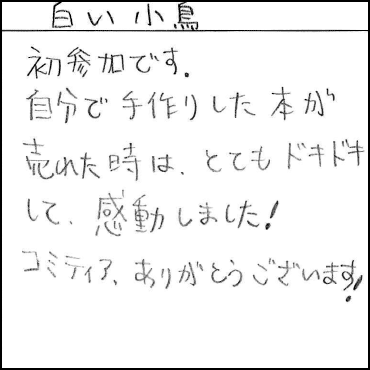 白い小鳥
初参加です.
自分で手作りした本が
売れた時は、とてもドキドキ
して、感動しました!
コミティア、ありがとうございます!